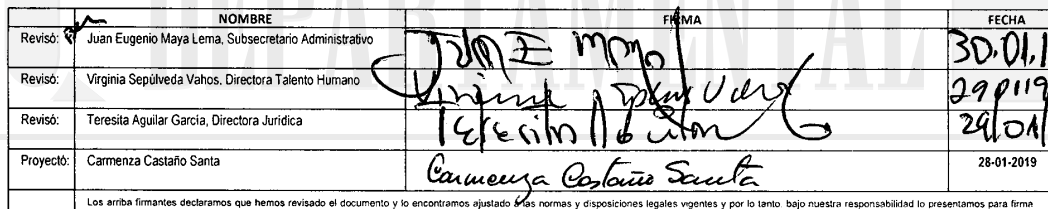 DEPARTAMENTAL
NOMBRE FIRMA FECHA
Revisó: Juan Eugenio Maya Lema, Subsecretario Administrativo 30.01.1
Revisó: Virginia Sepúlveda Vahos, Directora Talento Humano 290119
Revisó: Teresita Aguilar García, Directora Jurídica Teresita Aguilar 29/01/
Proyectó: Carmenza Castaño Santa Carmenza Castaño Santa 28-01-2019
Los arriba firmantes declaramos que hemos revisado el documento y lo encontramos ajustado a las normas y disposiciones legales vigentes y por lo tanto, bajo nuestra responsabilidad lo presentamos para firma